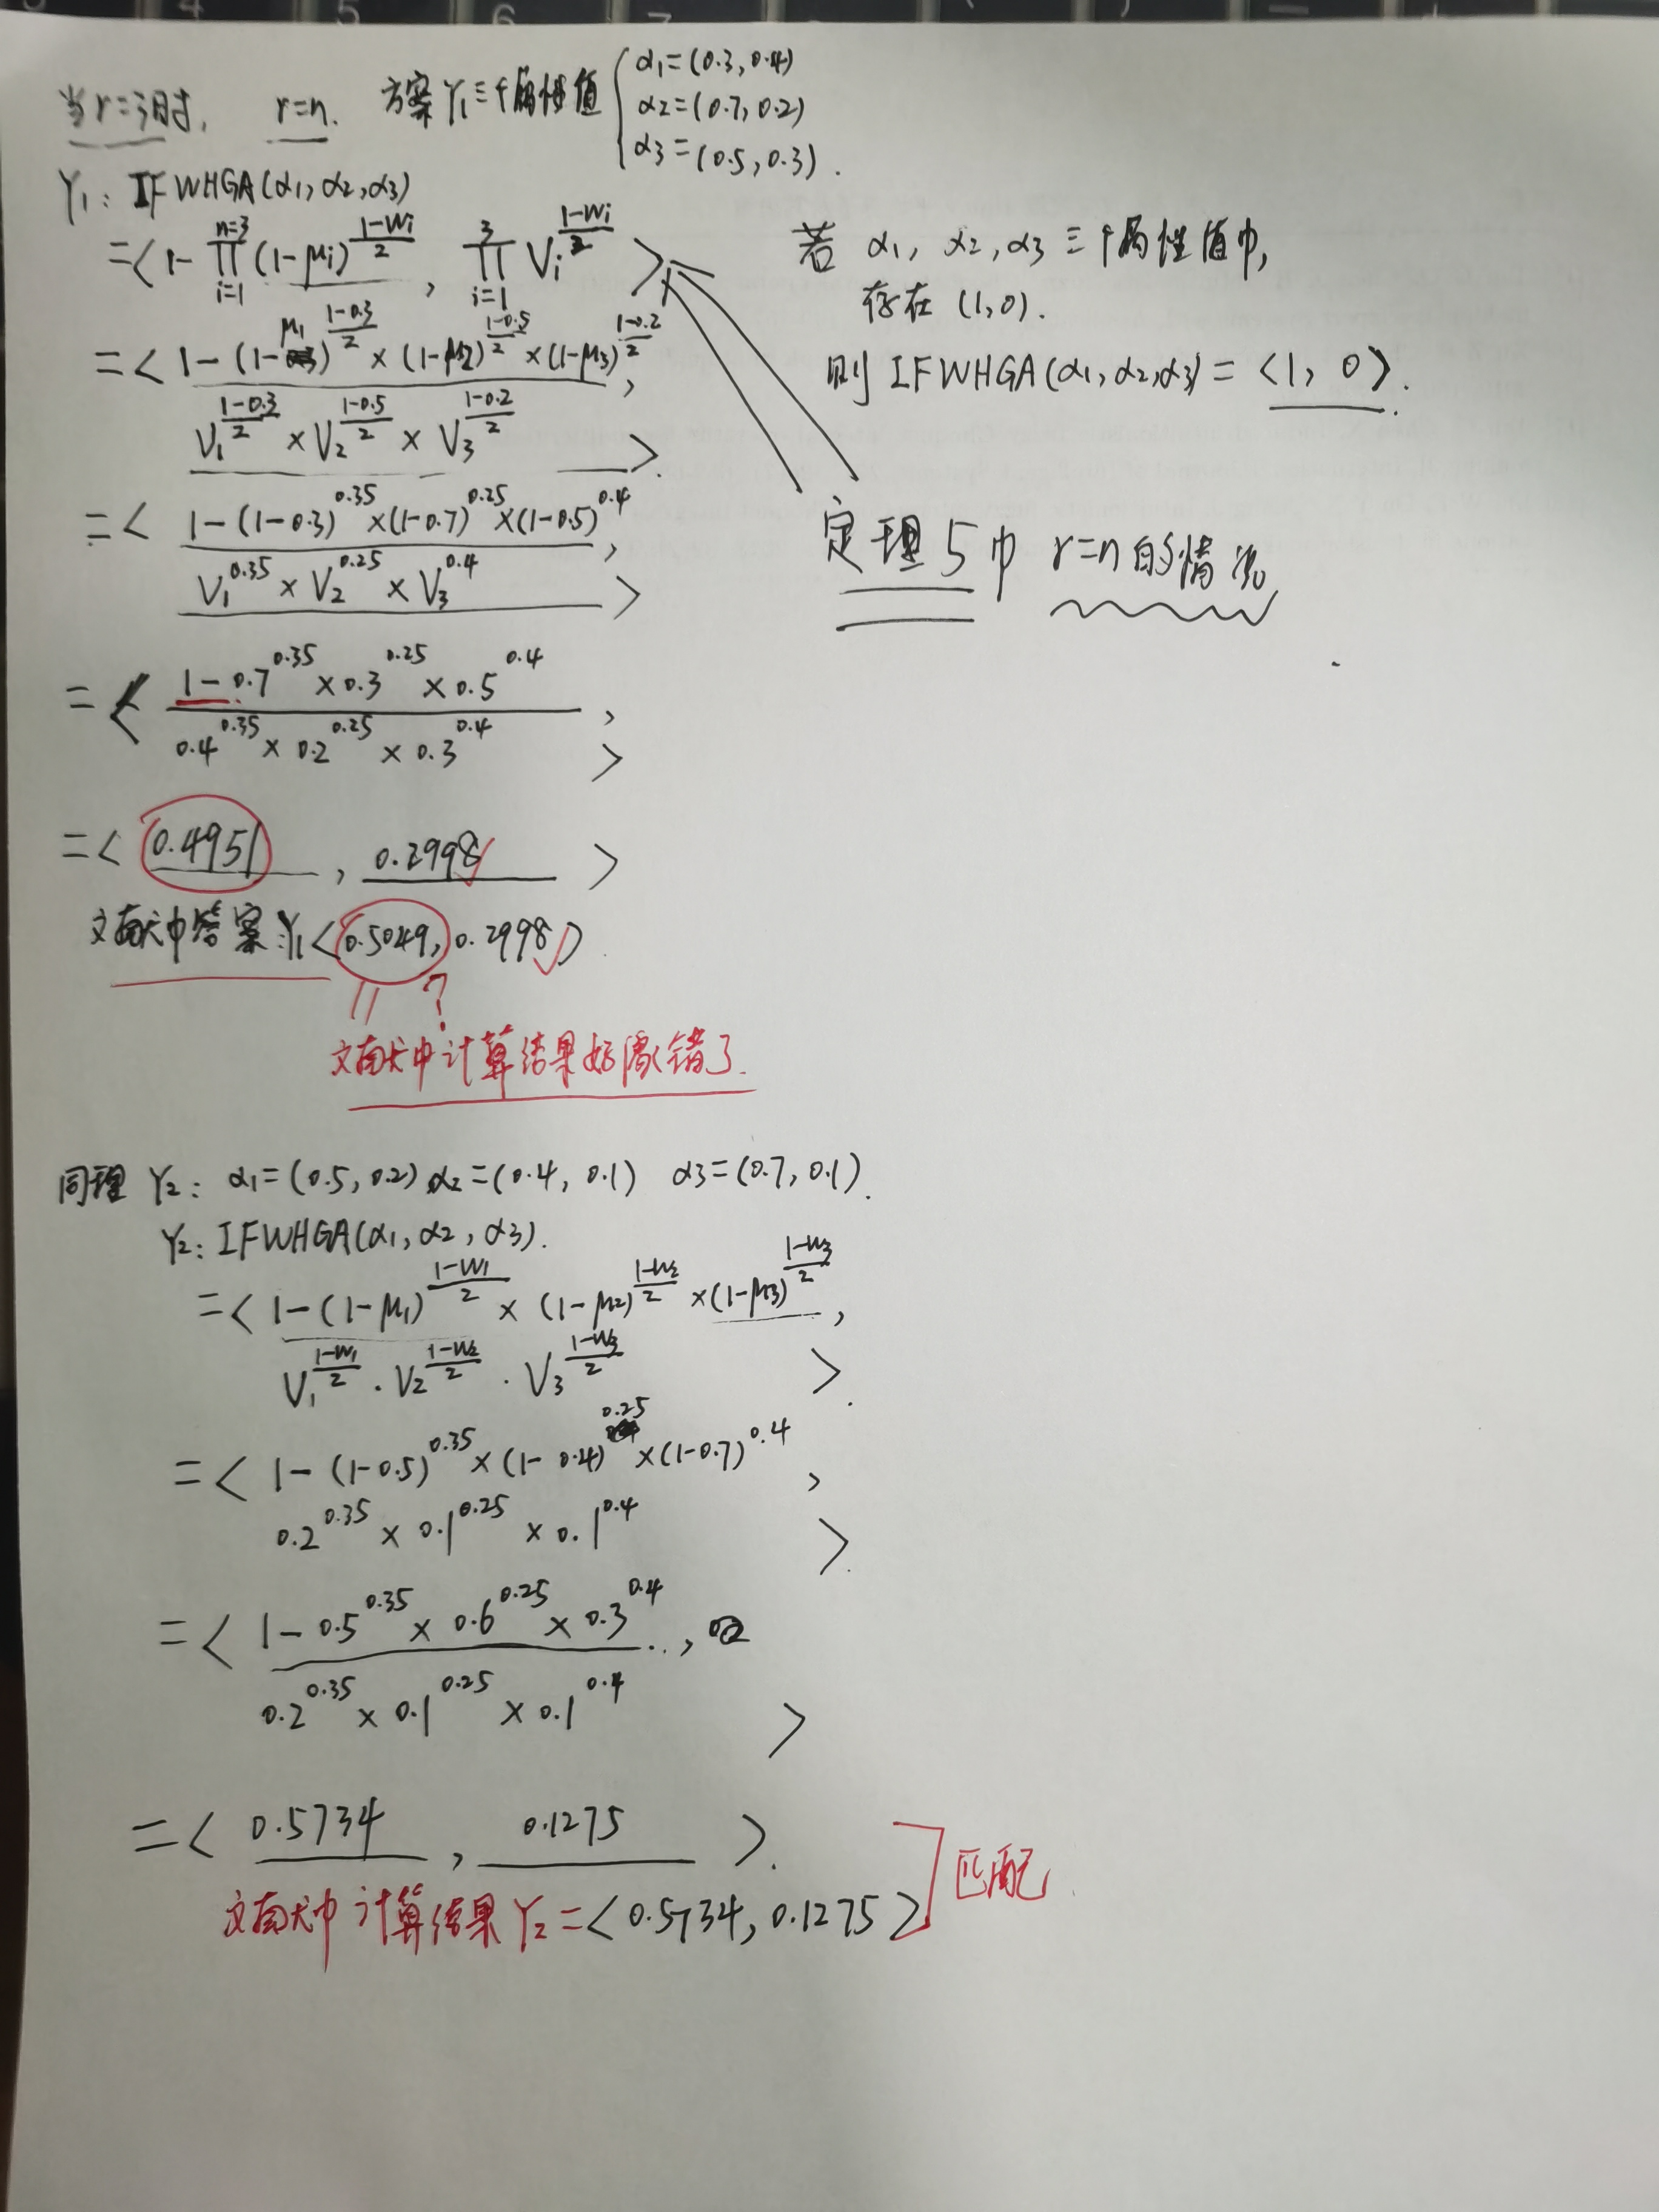 当r=3时, r=n. 方案Y₁三个属性值 { α₁=(0.3, 0.4)
α₂=(0.7, 0.2)
α₃=(0.5, 0.3).
Y₁: IFWHGA(α₁, α₂, α₃)
=< 1-∏_{i=1}^{n=3}(1-μᵢ)^{(1-wᵢ)/2}, ∏_{i=1}^{3} Vᵢ^{(1-wᵢ)/2} >
若 α₁, α₂, α₃ 三个属性值中,
存在 (1, 0).
则 IFWHGA(α₁, α₂, α₃) = <1, 0>.
=< 1-(1-μ₁)^{(1-0.3)/2} × (1-μ₂)^{(1-0.5)/2} × (1-μ₃)^{(1-0.2)/2},
V₁^{(1-0.3)/2} × V₂^{(1-0.5)/2} × V₃^{(1-0.2)/2} >.
=< 1-(1-0.3)^{0.35} × (1-0.7)^{0.25} × (1-0.5)^{0.4},
V₁^{0.35} × V₂^{0.25} × V₃^{0.4} >
定理5中 r=n的情况
=< 1-0.7^{0.35} × 0.3^{0.25} × 0.5^{0.4},
0.4^{0.35} × 0.2^{0.25} × 0.3^{0.4} >
=< 0.4951, 0.2998 >
文献中答案: Y₁<0.5049, 0.2998>
?
文献中计算结果好像错了.
同理 Y₂: α₁=(0.5, 0.2) α₂=(0.4, 0.1) α₃=(0.7, 0.1).
Y₂: IFWHGA(α₁, α₂, α₃).
=< 1-(1-μ₁)^{(1-w₁)/2} × (1-μ₂)^{(1-w₂)/2} × (1-μ₃)^{(1-w₃)/2},
V₁^{(1-w₁)/2} · V₂^{(1-w₂)/2} · V₃^{(1-w₃)/2} >.
=< 1-(1-0.5)^{0.35} × (1-0.4)^{0.25} × (1-0.7)^{0.4},
0.2^{0.35} × 0.1^{0.25} × 0.1^{0.4} >.
=< 1-0.5^{0.35} × 0.6^{0.25} × 0.3^{0.4},
0.2^{0.35} × 0.1^{0.25} × 0.1^{0.4} >
=< 0.5734, 0.1275 >.
文献中计算结果 Y₂=<0.5734, 0.1275> ] 匹配